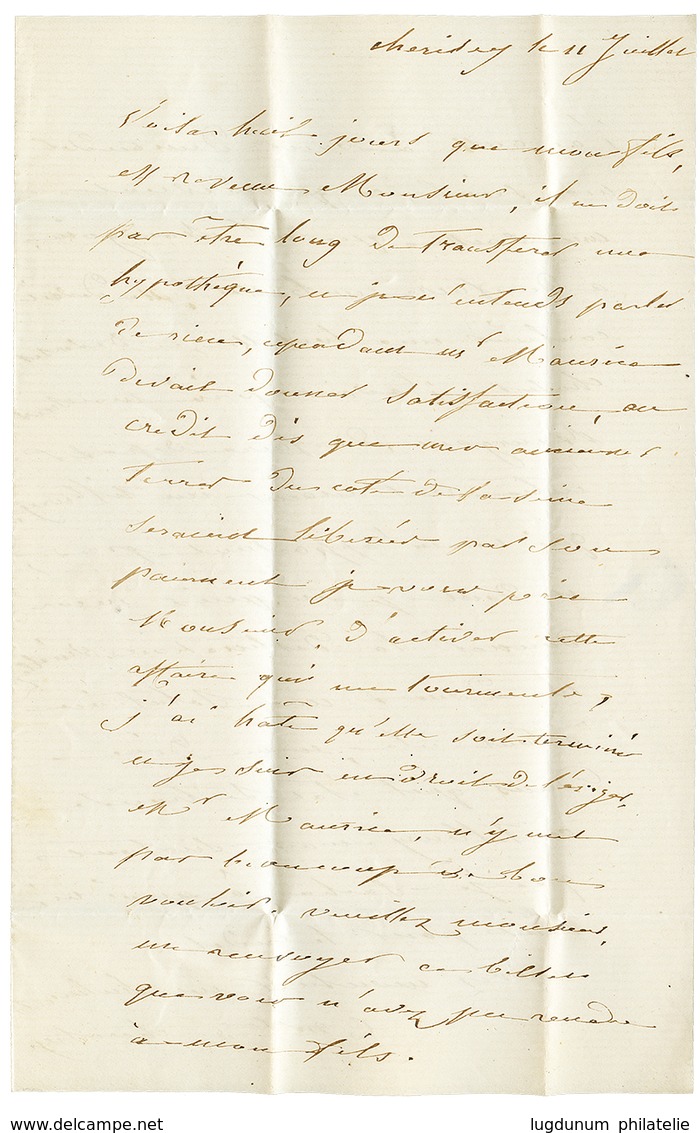 cherisey le 11 Juillet
Voila huit jours que mon fils,
est revenu Monsieur, il ne doit
pas être long de transferer une
hypothèque, et je n'entends parler
de rien, cependant mr Maurice
devait donner satisfaction, au
credit dès que mes
terres du coté de la seine
seraient liberées par son
paiement je vous prie
Monsieur, d'activer cette
affaire qui me tourmente,
j'ai hâte qu'elle soit terminée
et je suis en droit de l'exiger,
Mr Maurice, n'y met
pas beaucoup de bon
vouloir. veuillez monsieur,
me renvoyer ces billets
que vous n'avez pu rendre
à mon fils.
www.delcampe.net
lugdunum philatelie